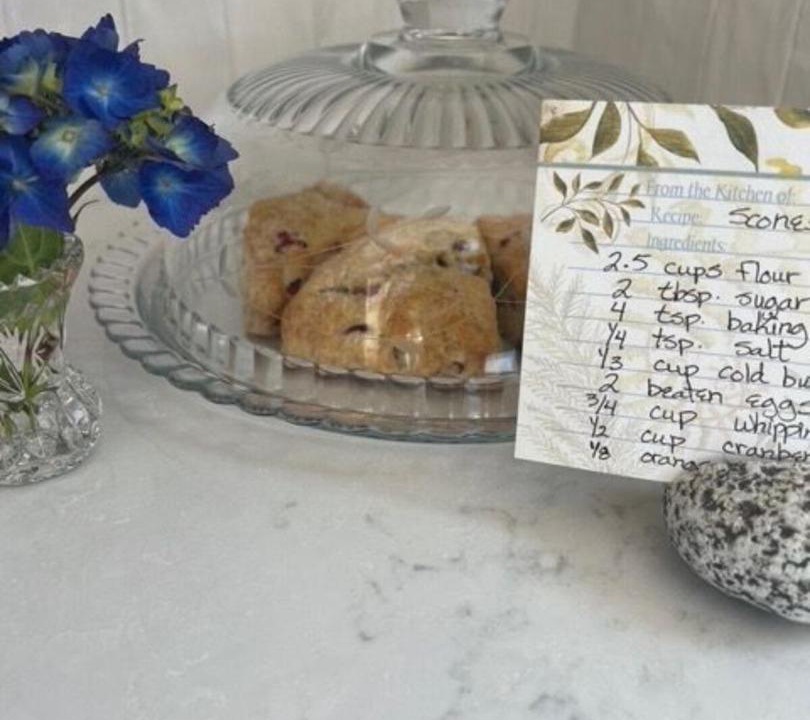 From the Kitchen of:
Recipe: Scones
Ingredients:
2.5 cups flour
2 tbsp. sugar
4 tsp. baking
1/4 tsp. salt
1/3 cup cold
2 beaten eggs
3/4 cup
1/2 cup
1/8